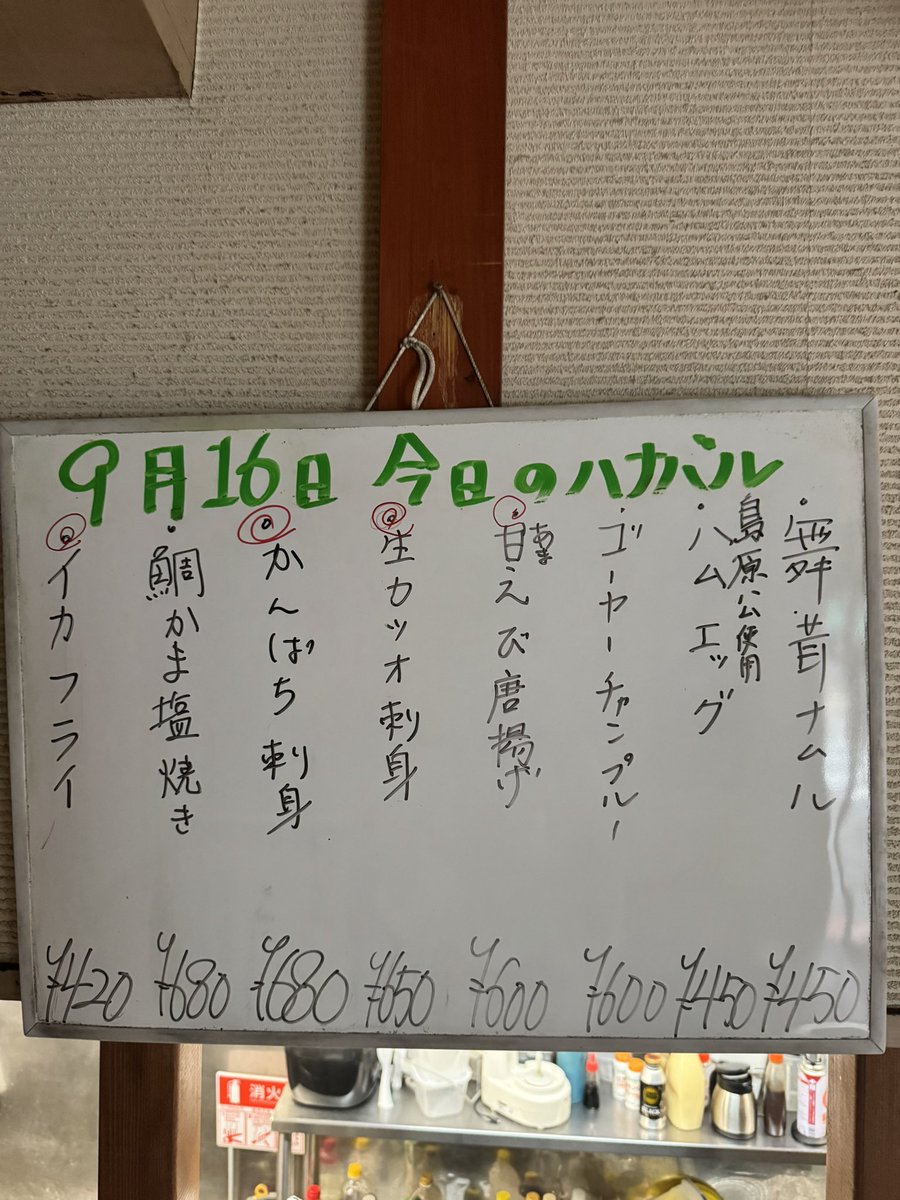 9月16日 今日のハカバル
・舞茸ナムル ¥450
島原ハム使用
・ハムエッグ ¥450
・ゴーヤーチャンプルー ¥600
・甘えび唐揚げ ¥600
あま
・生カツオ刺身 ¥650
・かんぱち刺身 ¥680
・鯛かま塩焼き ¥680
・イカフライ ¥420
消火
BLACK